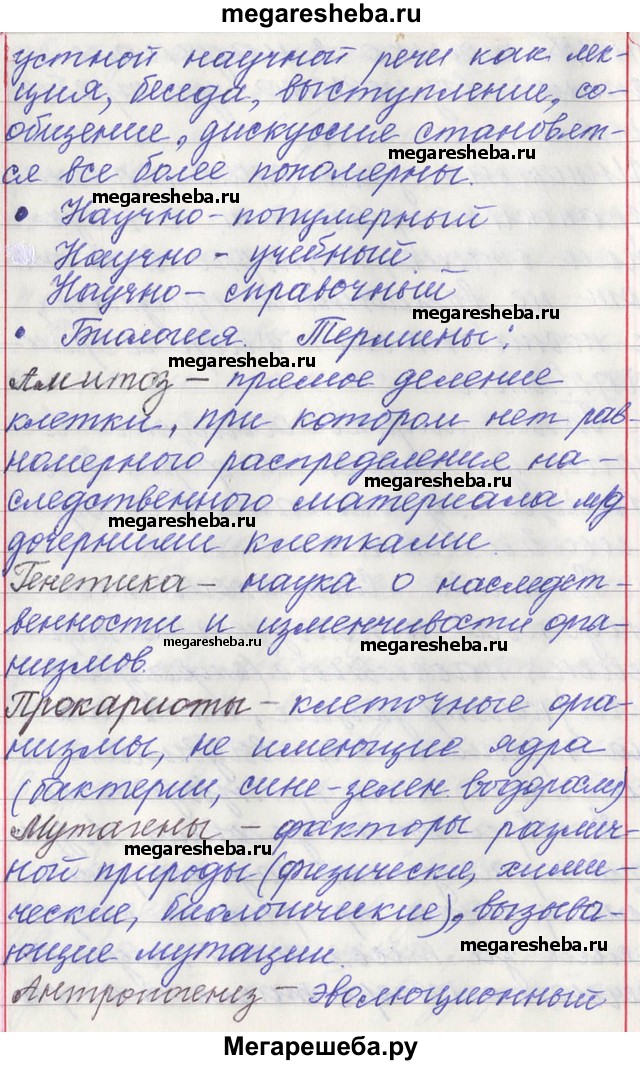 megaresheba.ru
устной научной речи как лек-
ция, беседа, выступление, со-
общение, дискуссия становят-
megaresheba.ru
ся все более популярны.
megaresheba.ru
• Научно-популярный
Научно - учебный
Научно - справочный
megaresheba.ru
• Биология. Термины:
megaresheba.ru
Амитоз - прямое деление
клетки, при котором нет рав-
номерного распределения на-
megaresheba.ru
следственного материала м/д
megaresheba.ru
дочерними клетками.
Генетика - наука о наследст-
венности и изменчивости орга-
megaresheba.ru
megaresheba.ru
низмов.
Прокариоты - клеточные орга-
низмы, не имеющие ядра
(бактерии, сине-зелен водоросли)
Мутагены - факторы различ-
megaresheba.ru
ной природы (физически, хими-
ческие, биологические), вызыва-
megaresheba.ru
ющие мутации.
Антропогенез - эволюционный
Мегарешеба.ру